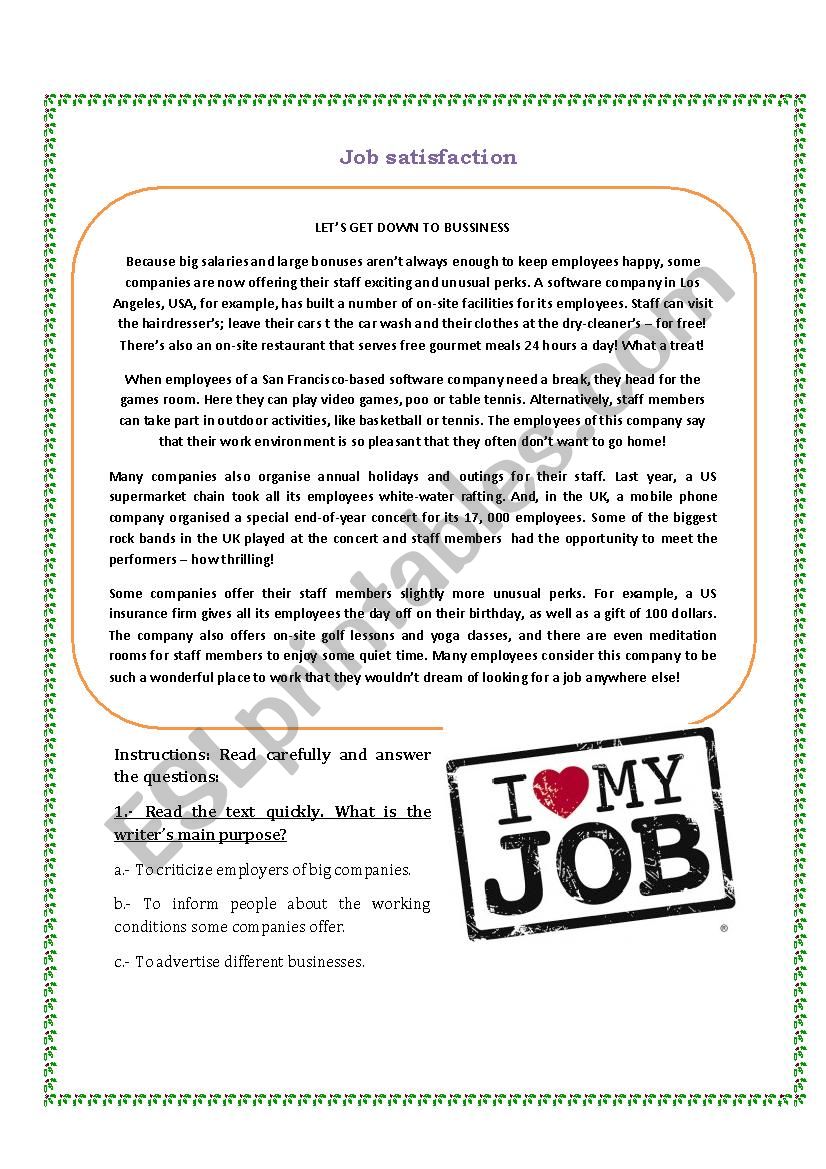 Job satisfaction
LET'S GET DOWN TO BUSSINESS
Because big salaries and large bonuses aren't always enough to keep employees happy, some
companies are now offering their staff exciting and unusual perks. A software company in Los
Angeles, USA, for example, has built a number of on-site facilities for its employees. Staff can visit
the hairdresser's; leave their cars t the car wash and their clothes at the dry-cleaner's – for free!
There's also an on-site restaurant that serves free gourmet meals 24 hours a day! What a treat!
When employees of a San Francisco-based software company need a break, they head for the
games room. Here they can play video games, poo or table tennis. Alternatively, staff members
can take part in outdoor activities, like basketball or tennis. The employees of this company say
that their work environment is so pleasant that they often don't want to go home!
Many companies also organise annual holidays and outings for their staff. Last year, a US
supermarket chain took all its employees white-water rafting. And, in the UK, a mobile phone
company organised a special end-of-year concert for its 17, 000 employees. Some of the biggest
rock bands in the UK played at the concert and staff members had the opportunity to meet the
performers – how thrilling!
Some companies offer their staff members slightly more unusual perks. For example, a US
insurance firm gives all its employees the day off on their birthday, as well as a gift of 100 dollars.
The company also offers on-site golf lessons and yoga classes, and there are even meditation
rooms for staff members to enjoy some quiet time. Many employees consider this company to be
such a wonderful place to work that they wouldn't dream of looking for a job anywhere else!
Instructions: Read carefully and answer
the questions:
1.- Read the text quickly. What is the
writer's main purpose?
a.- To criticize employers of big companies.
b.- To inform people about the working
conditions some companies offer.
c.- To advertise different businesses.
I ♥ MY
JOB
®
ESLprintables.com